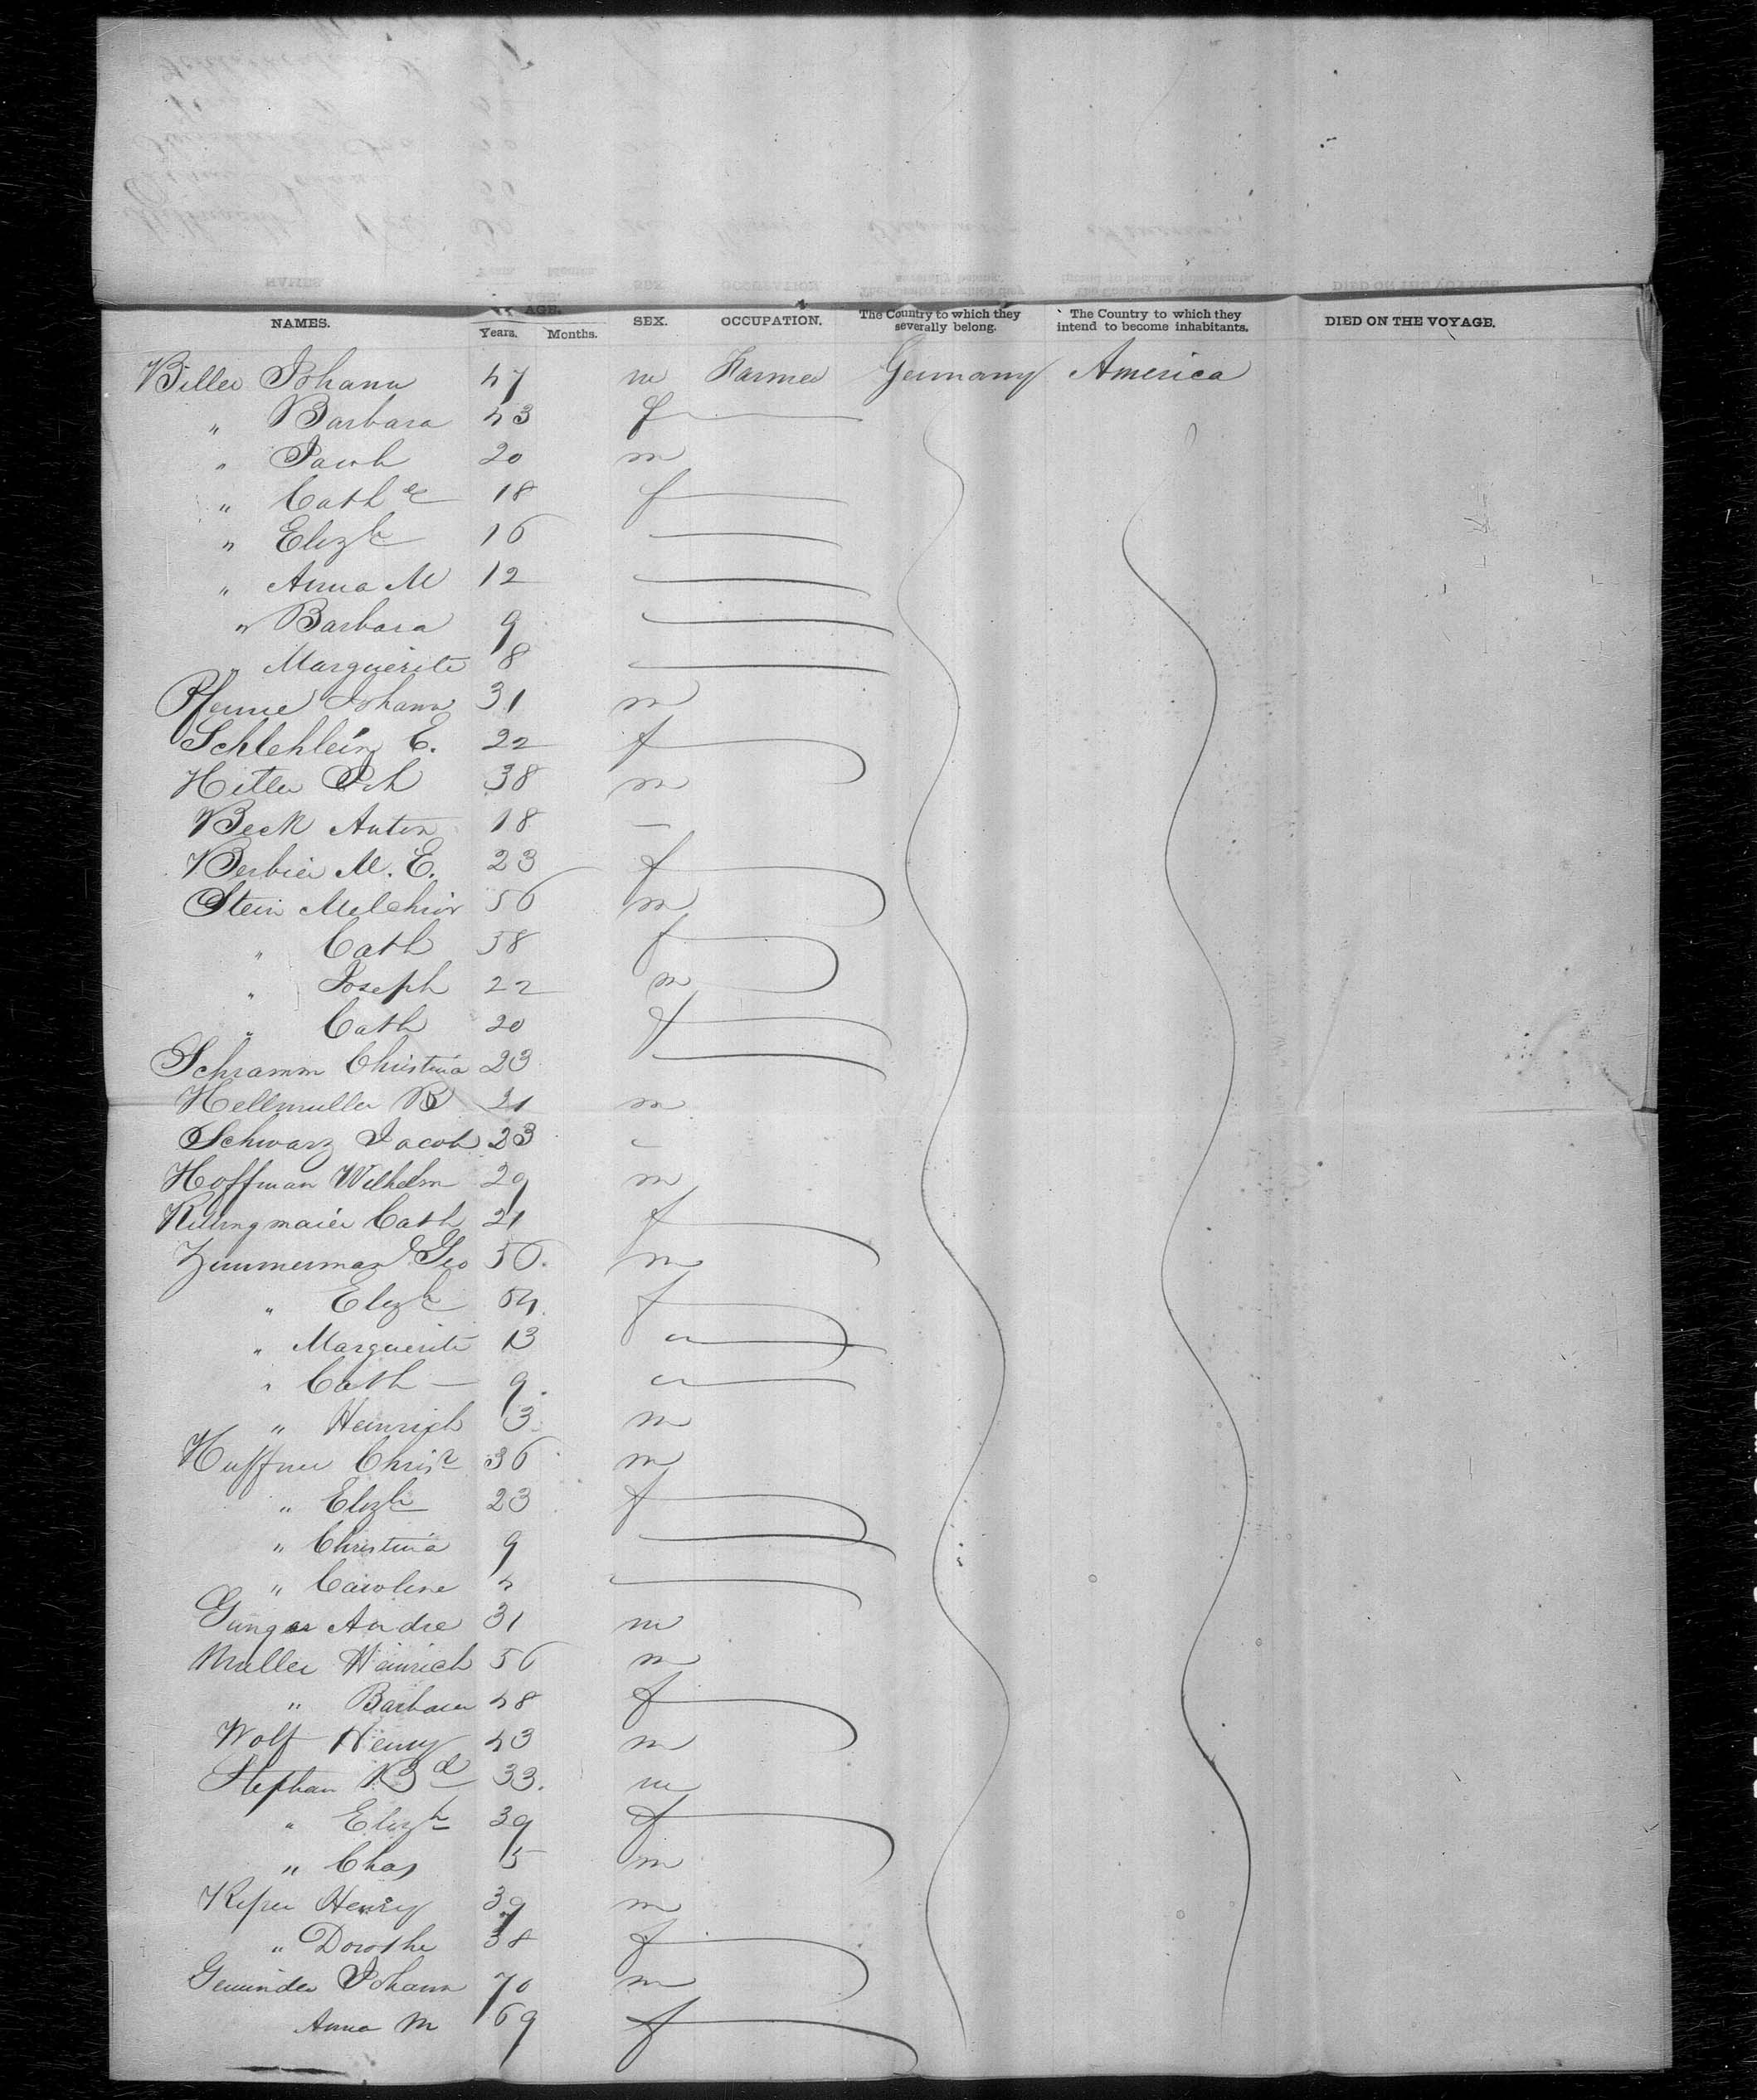 NAMES. AGE. Years. Months. SEX. OCCUPATION. The Country to which they severally belong. The Country to which they intend to become inhabitants. DIED ON THE VOYAGE.
Biller Johann 47 m Farmer Germany America
" Barbara 43 f
" Jacob 20 m
" Cath 18 f
" Elizh 16
" Anna M 12
" Barbara 9
" Marguerite 8
Johann 31 m
Schlehlein E. 22 f
38 m
Beck Anton 18 —
Berbier M. E. 23 f
Stein Melchior 56 m
" Cath 58 f
" Joseph 22 m
" Cath 20 f
Schramm Christina 23
Hellmuller B 21 m
Schwarz Jacob 23
Hoffman Wilhelm 29 m
Cath 21 f
Zimmerman Geo 56. m
" Elizh 54. f
" Marguerite 13
" Cath — 9.
" Heinrich 3. m
Huffner Chrisn 36 m
" Elizh 23 f
" Christina 9
" Caroline 4
Andre 31 m
Muller Heinrich 56 m
" Barbara 48 f
Wolf Henry 43 m
Stephan 33. m
" Elizh 39 f
" Chas 5 m
Henry 39 m
" Dorothe 38 f
Geminder Johann 70 m
Anna M 69 f